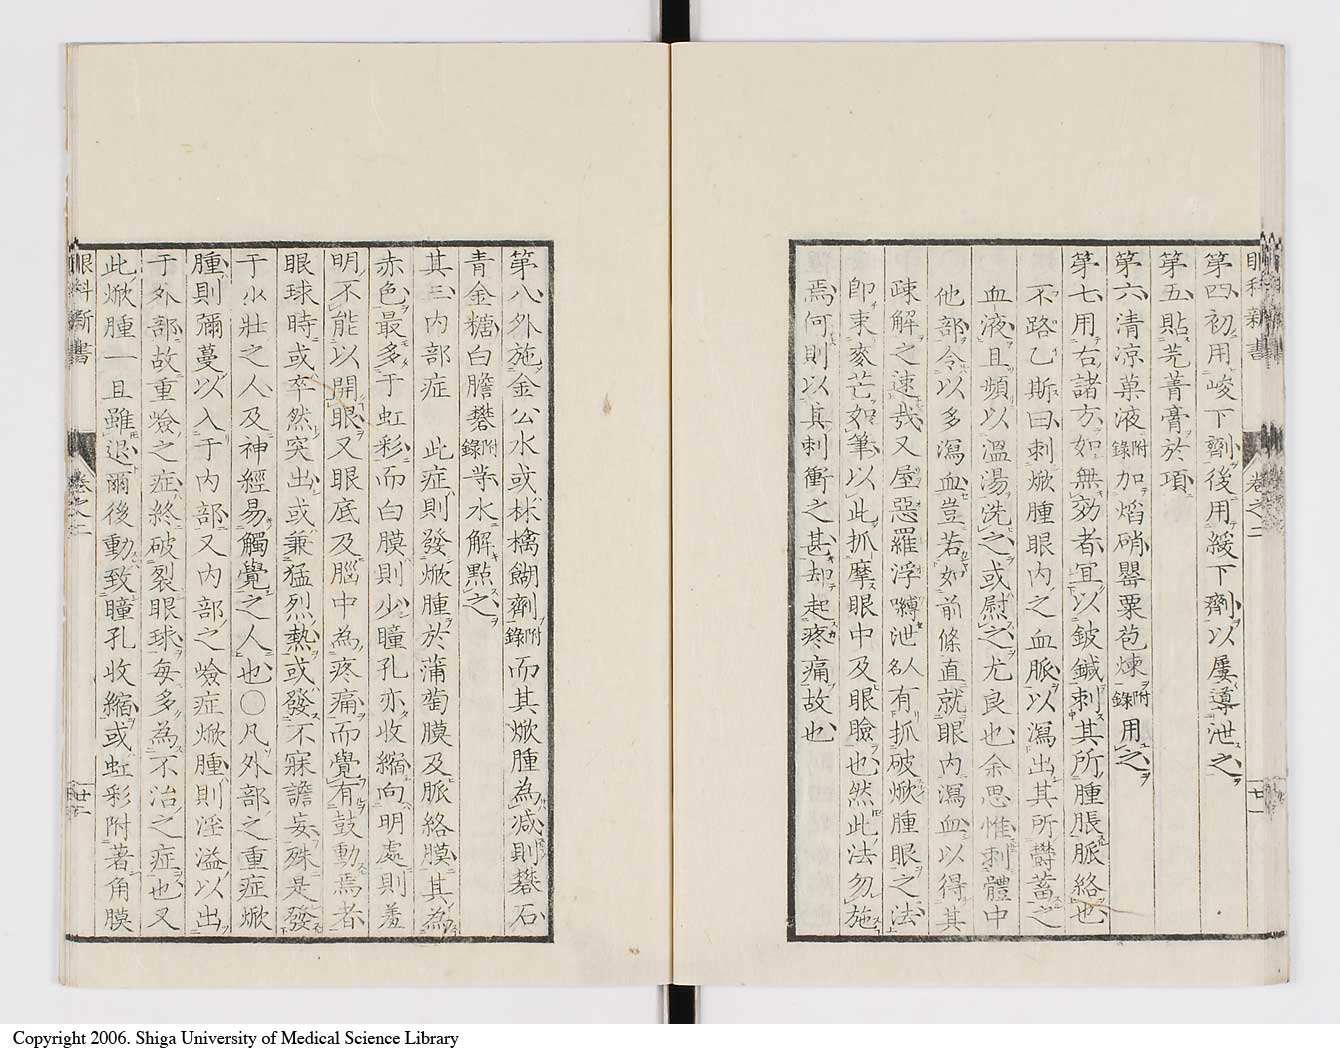 眼科新書 卷之二 廿一
第四初用峻下劑後用緩下劑以屢導泄之
第五貼芫菁膏於項
第六清凉菓液附錄加焰硝罌粟苞煉附錄用之
第七用右諸方如無効者宜以鈹鍼刺其所腫脹脈絡也
不路乙斯曰刺焮腫眼內之血脈以瀉出其所欝蓄之
血液且頻以溫湯洗之或慰之尤良也余思惟刺體中
他部令以多瀉血豈若如前條直就眼內瀉血以得其
疎解之速哉又屋惡羅浮縛泄人名有抓破焮腫眼之法
卽束麥芒如筆以此抓摩眼中及眼瞼也然此法勿施
焉何則以其刺衝之甚却起疼痛故也
第八外施金公水或林檎餬劑附錄而其焮腫為減則礬石
青金糖白膽礬附錄等水解點之
其三內部症 此症則發焮腫於蒲萄膜及脈絡膜其為
赤色最多于虹彩而白膜則少瞳孔亦收縮向明處則羞
明不能以開眼又眼底及腦中為疼痛而覺有鼓動焉者
眼球時或卒然突出或兼猛烈熱或發不寐譫妄殊是發
于少壯之人及神經易觸覺之人也〇凡外部之重症焮
腫則彌蔓以入于內部又內部之嶮症焮腫則淫溢以出
于外部故重嶮之症終破裂眼球每多為不治之症也又
此焮腫一且雖退爾後動致瞳孔收縮或虹彩附著角膜
眼科新書 卷之二 廿二
Copyright 2006. Shiga University of Medical Science Library